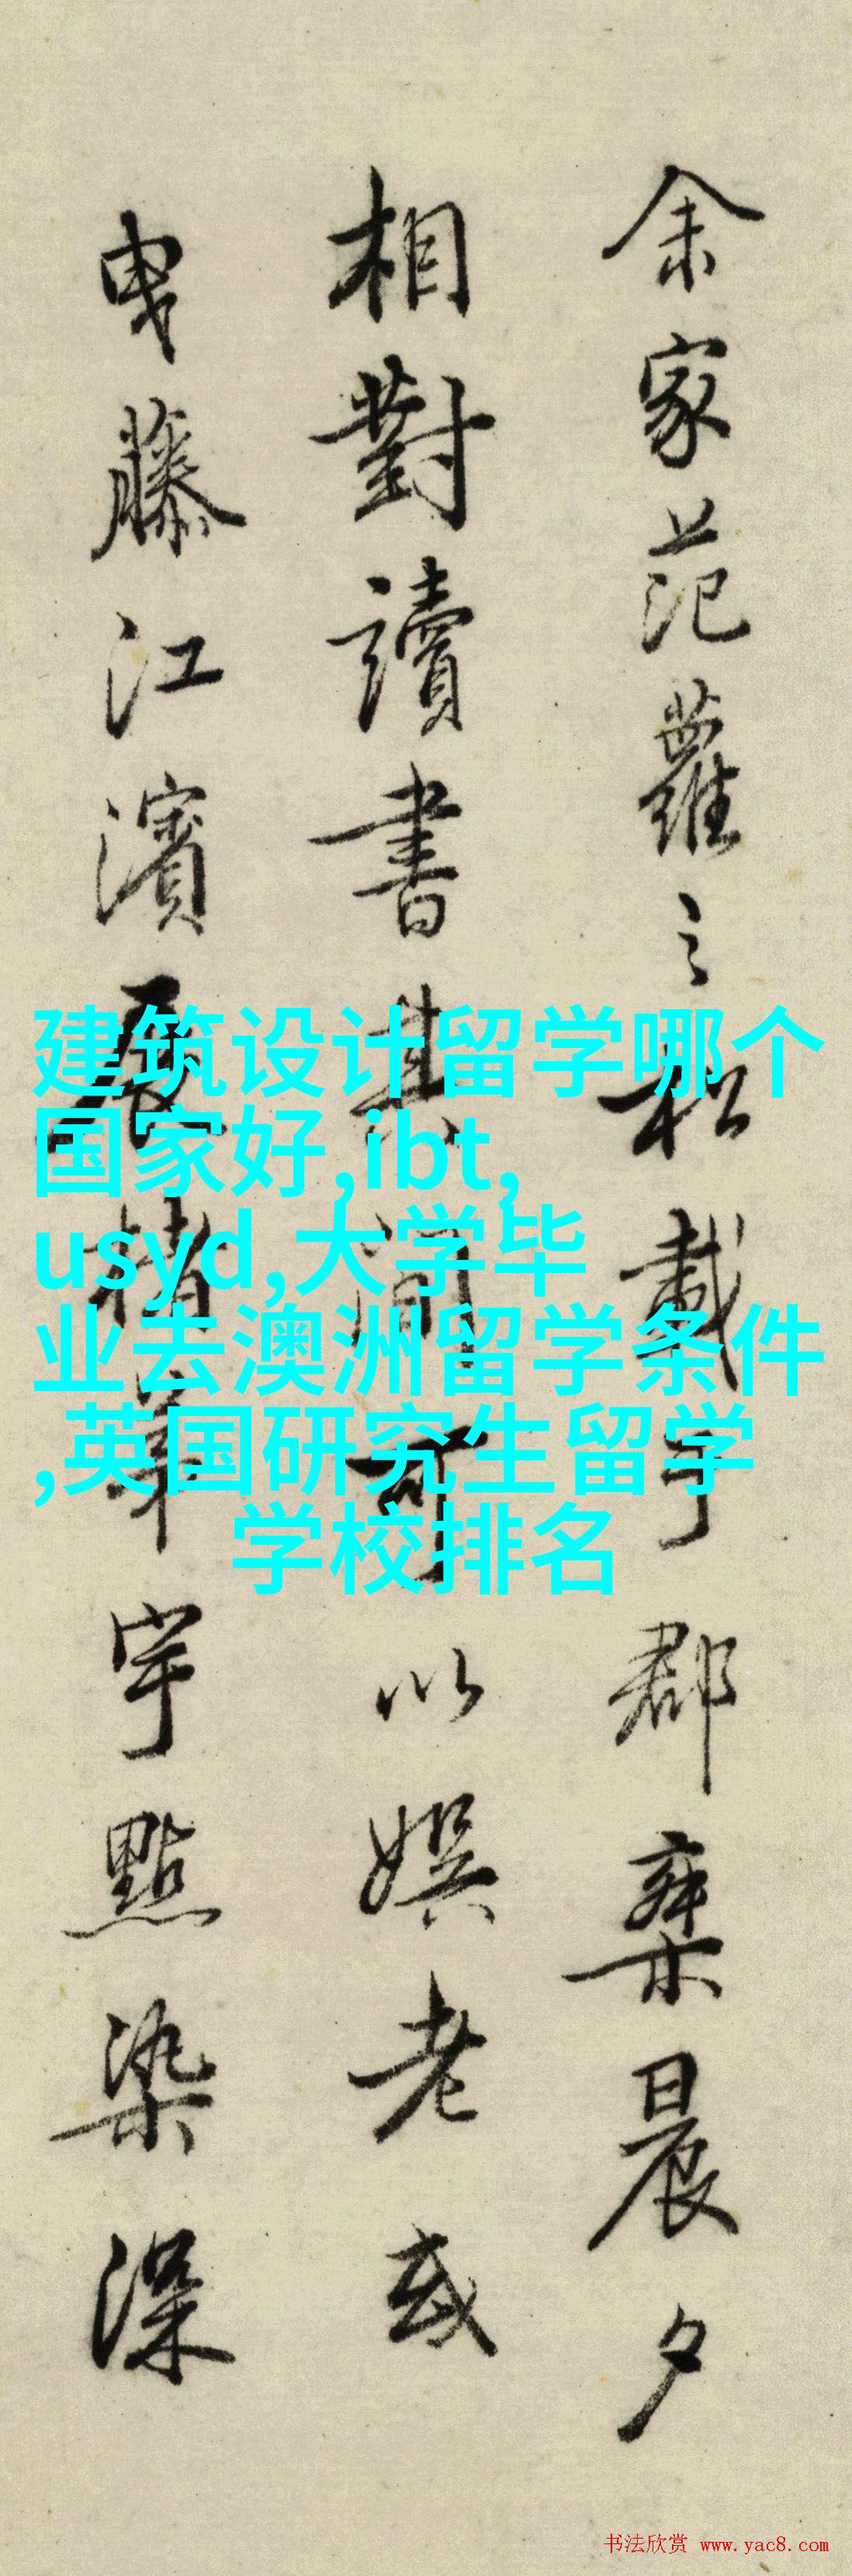 余家范蘿之松載于郡乘晨夕
相對讀書其間可以娛老或
曳藤江濱展楮宇點染深
建筑设计留学哪个
国家好,ibt,
usyd,大学毕
业去澳洲留学条件
,英国研究生留学
学校排名
书法欣赏 www.yac8.com